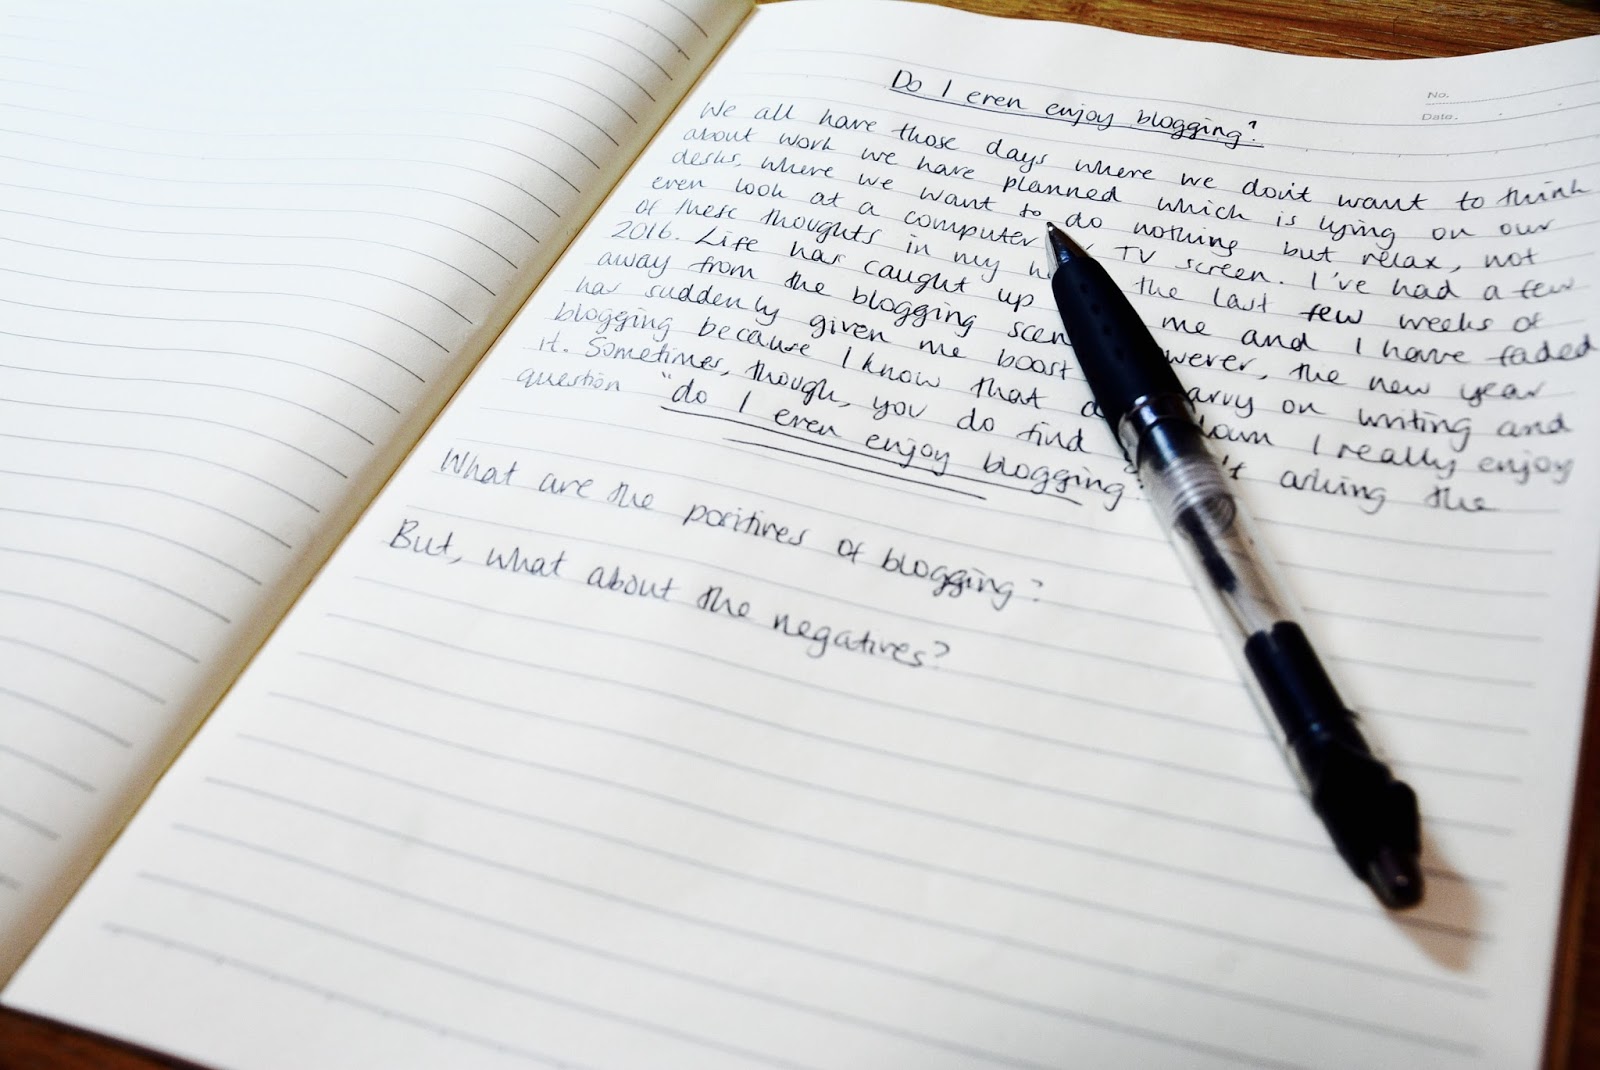 No.
Date.
Do I even enjoy blogging?
We all have those days where we don't want to think
about work we have planned which is lying on our
desks, where we want to do nothing but relax, not
even look at a computer TV screen. I've had a few
of these thoughts in my the last few weeks of
2016. Life has caught up me and I have faded
away from the blogging the new year
has suddenly given me boost carry on writing and
blogging because I know that I really enjoy
it. Sometimes, though, you do find asking the
question "do I even enjoy blogging?
What are the positives of blogging?
But, what about the negatives?